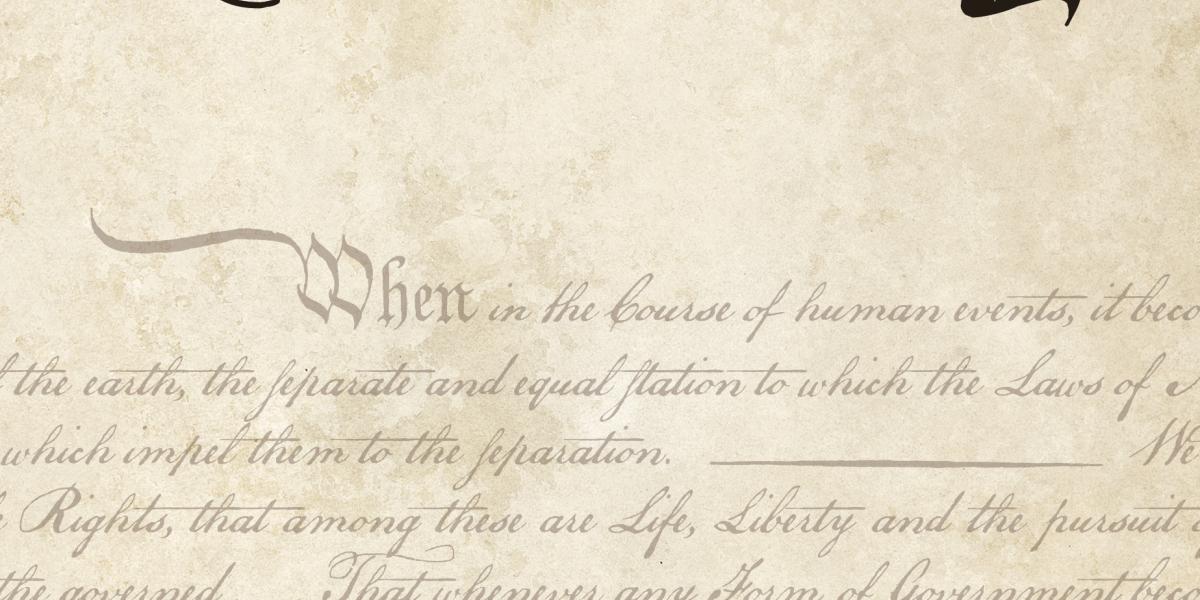 When in the Course of human events, it beco
the earth, the ſeparate and equal ſtation to which the Laws of
which impel them to the ſeparation. We
Rights, that among these are Life, Liberty and the pursuit
the governed That whenever any Form of Government beco